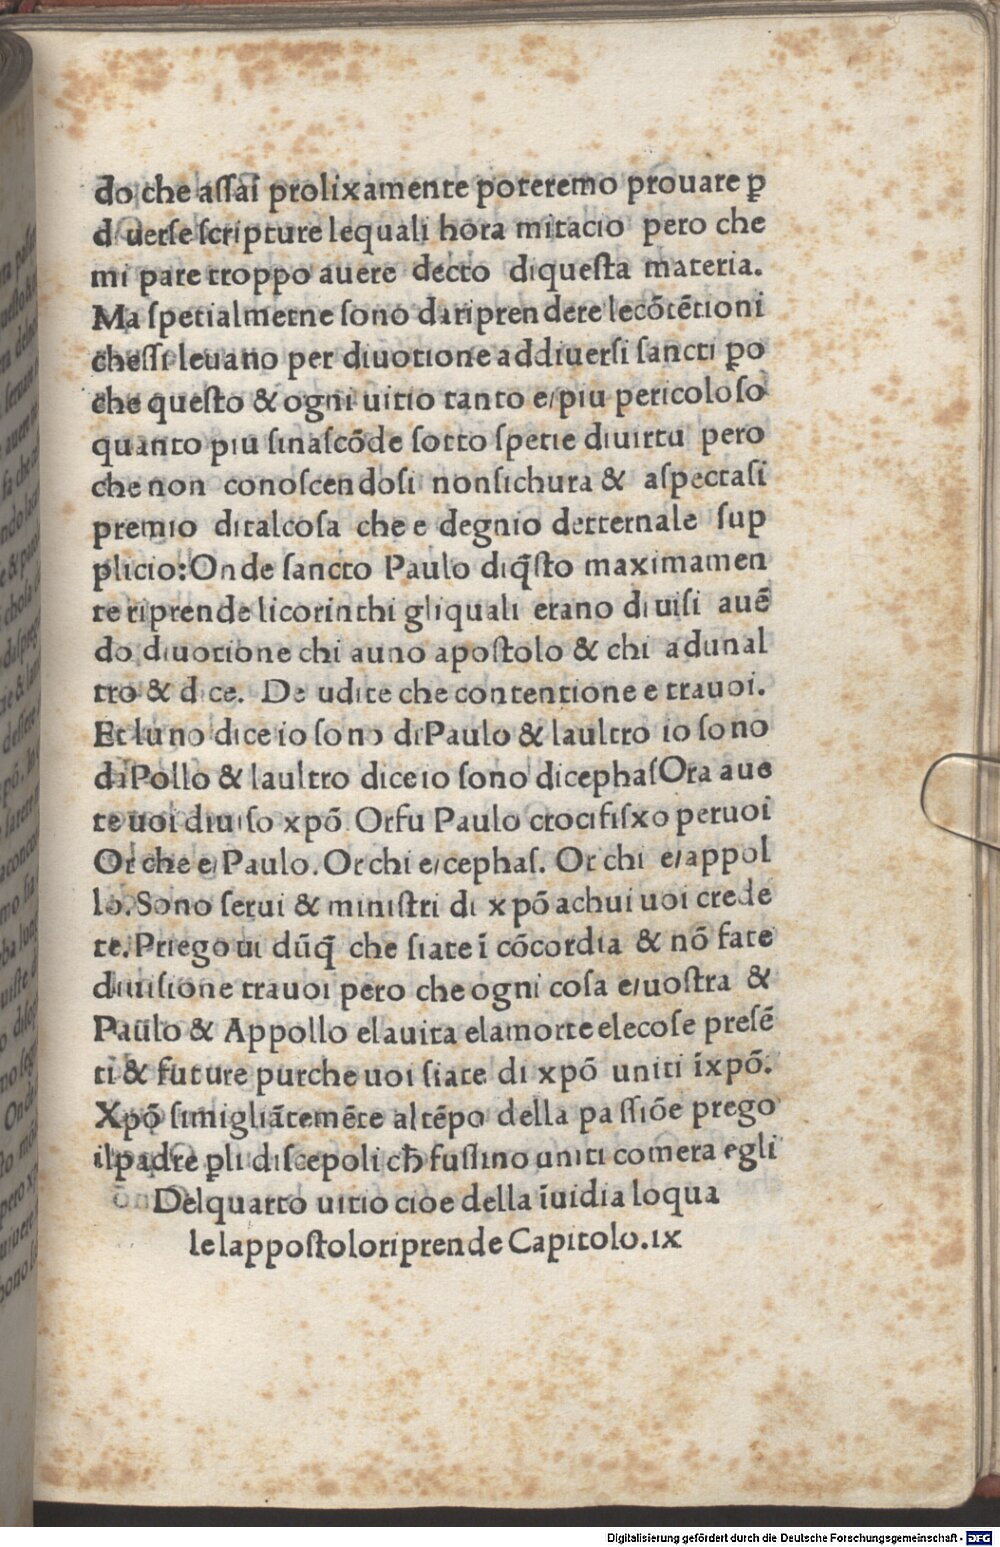 do che aſſai prolixamente poteremo prouare ꝑ
d uerſe ſcripture lequali hora mitacio pero che
mi pare troppo auere decto diqueſta materia.
Ma ſpetialmetne ſono dariprendere lecõtẽtioni
cheſſi leuano per diuotione addiuerſi ſancti ꝑo
che queſto & ogni uitio tanto e/piu pericoloſo
quanto piu ſinaſcõde ſotto ſpetie diuirtu pero
che non conoſcendoſi nonſichura & aſpectaſi
premio ditalcoſa che e degnio detternale ſup
plicio:Onde ſancto Paulo diq̃ſto maximamen
te riprende licorinthi gliquali erano diuiſi auẽ
do diuotione chi auno apoſtolo & chi adunal
tro & dice. De udite che contentione e trauoi.
Et luno dice io ſono diPaulo & laultro io ſono
daPollo & laultro dice io ſono dicephaſOra aue
te uoi diuiſo xpõ Orfu Paulo crocifiſxo peruoi
Or che e/Paulo.Or chi e/cephaſ. Or chi e/appol
lo.Sono ſerui & miniſtri di xpõ achui uoi crede
te.Priego ui dũq̃ che ſiate ĩ cõcordia & nõ fate
diuiſione trauoi pero che ogni coſa e/uoſtra &
Paulo & Appollo elauita elamorte elecoſe preſẽ
ti & future purche uoi ſiate di xpõ uniti ĩxpõ.
Xpõ ſimigliãtemẽte altẽpo della paſſiõe prego
ilpadre ꝑli diſcepoli cħ fuſſino uniti comera egli
Delquarto uitio cioe della ĩuidia loqua
le lappoſtoloriprende Capitolo.ix
Digitalisierung gefördert durch die Deutsche Forschungsgemeinschaft - DFG